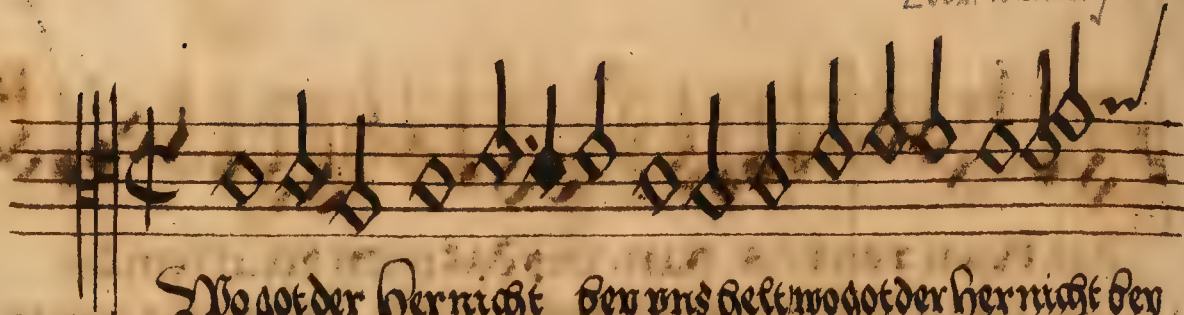 Wo got der Her nicht bey vns helt wo got der Her nicht bey